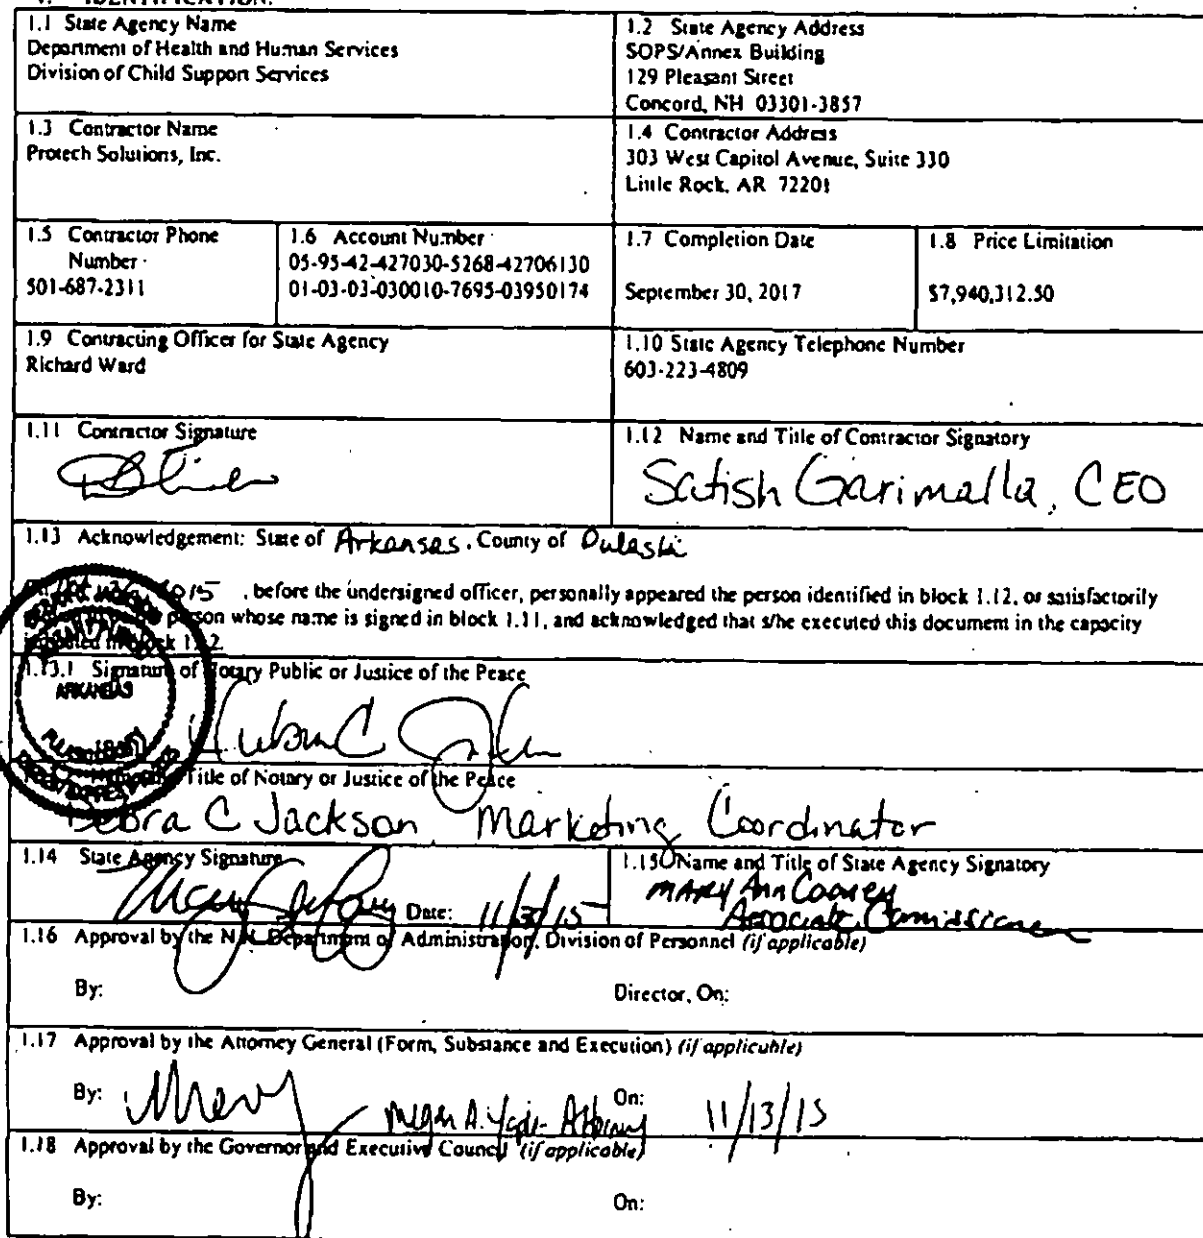 IDENTIFICATION.
1.1 State Agency Name
Department of Health and Human Services
Division of Child Support Services
1.2 State Agency Address
SOPS/Annex Building
129 Pleasant Street
Concord, NH 03301-3857
1.3 Contractor Name
Protech Solutions, Inc.
1.4 Contractor Address
303 West Capitol Avenue, Suite 330
Little Rock, AR 72201
1.5 Contractor Phone
Number
501-687-2311
1.6 Account Number
05-95-42-427030-5268-42706130
01-03-03-030010-7695-03950174
1.7 Completion Date
September 30, 2017
1.8 Price Limitation
$7,940,312.50
1.9 Contracting Officer for State Agency
Richard Ward
1.10 State Agency Telephone Number
603-223-4809
1.11 Contractor Signature
1.12 Name and Title of Contractor Signatory
Satish Garimalla, CEO
1.13 Acknowledgement: State of Arkansas, County of Pulaski
, before the undersigned officer, personally appeared the person identified in block 1.12, or satisfactorily
person whose name is signed in block 1.11, and acknowledged that s/he executed this document in the capacity
in block 1.12.
1.13.1 Signature of Notary Public or Justice of the Peace
ARKANSAS
Title of Notary or Justice of the Peace
Debra C Jackson Marketing Coordinator
1.14 State Agency Signature
Date: 11/3/15
1.15 Name and Title of State Agency Signatory
Mary Ann Cooney
Associate Commissioner
1.16 Approval by the N.H. Department of Administration, Division of Personnel (if applicable)
By:
Director, On:
1.17 Approval by the Attorney General (Form, Substance and Execution) (if applicable)
By:
Megan A. Attorney
On: 11/13/15
1.18 Approval by the Governor and Executive Council (if applicable)
By:
On: